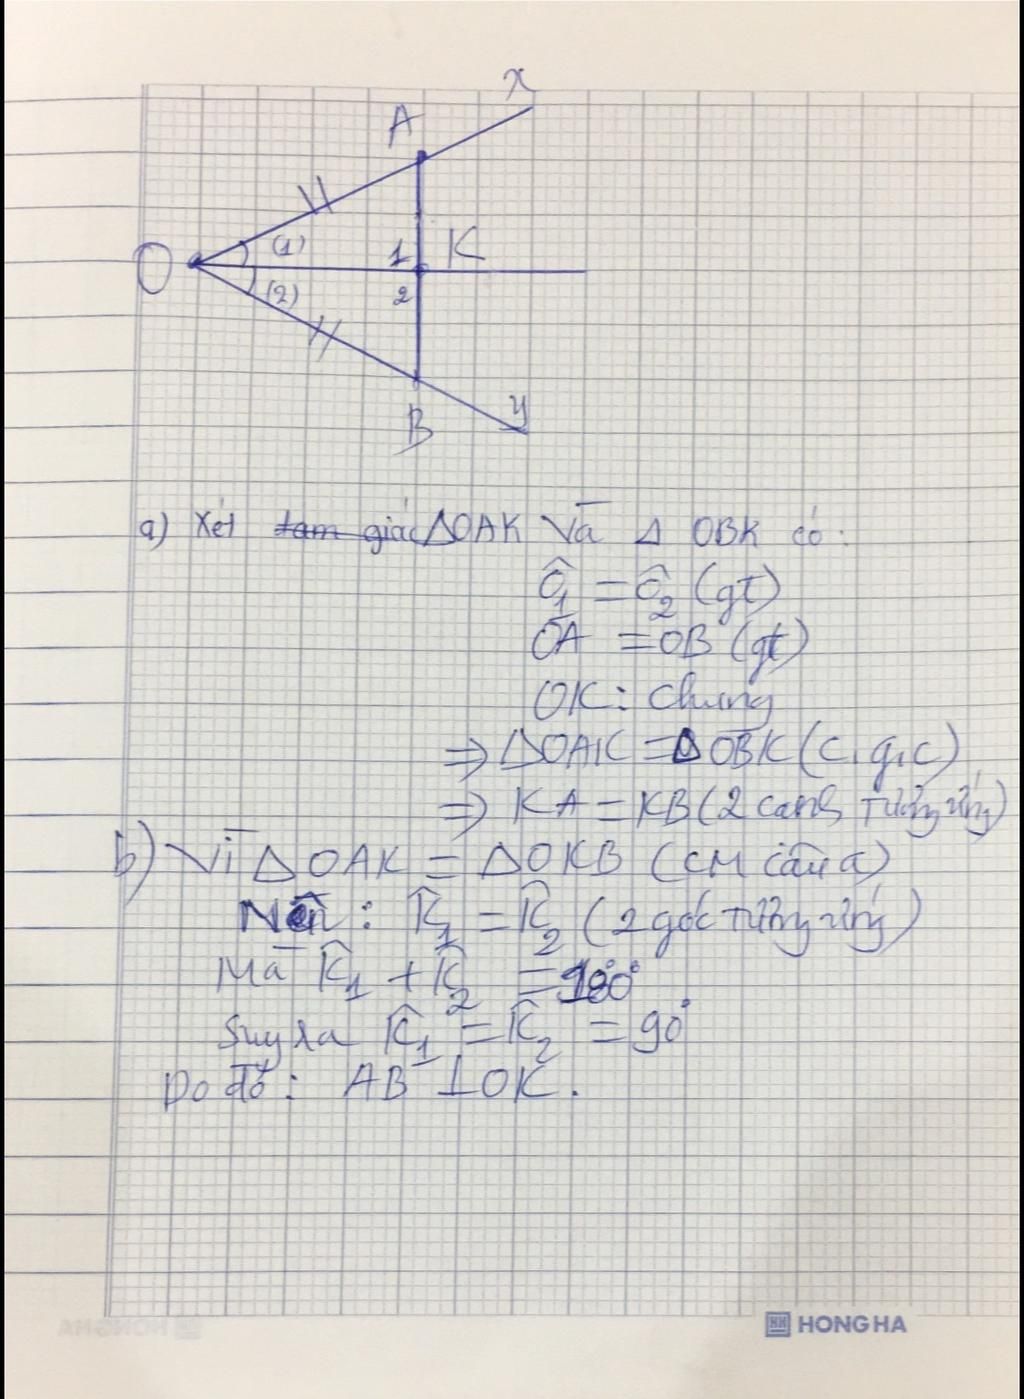 x
A
(1)
1 K
O
(2)
2
y
B
a) Xét tam giác ΔOAK Và Δ OBK có:
Ô₁ = Ô₂ (gt)
OA = OB (gt)
OK: Chung
⇒ ΔOAK = ΔOBK (c.g.c)
⇒ KA = KB (2 cạnh tương ứng)
b) Vì ΔOAK = ΔOKB (CM câu a)
Nên: K̂₁ = K̂₂ (2 góc tương ứng)
Mà K̂₁ + K̂₂ = 180°
Suy ra K̂₁ = K̂₂ = 90°
Do đó: AB ⊥ OK.
HONG HA